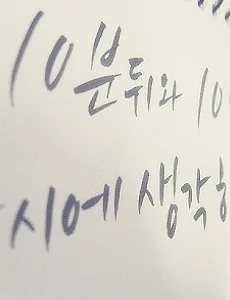 10분뒤와 10
시에 생각